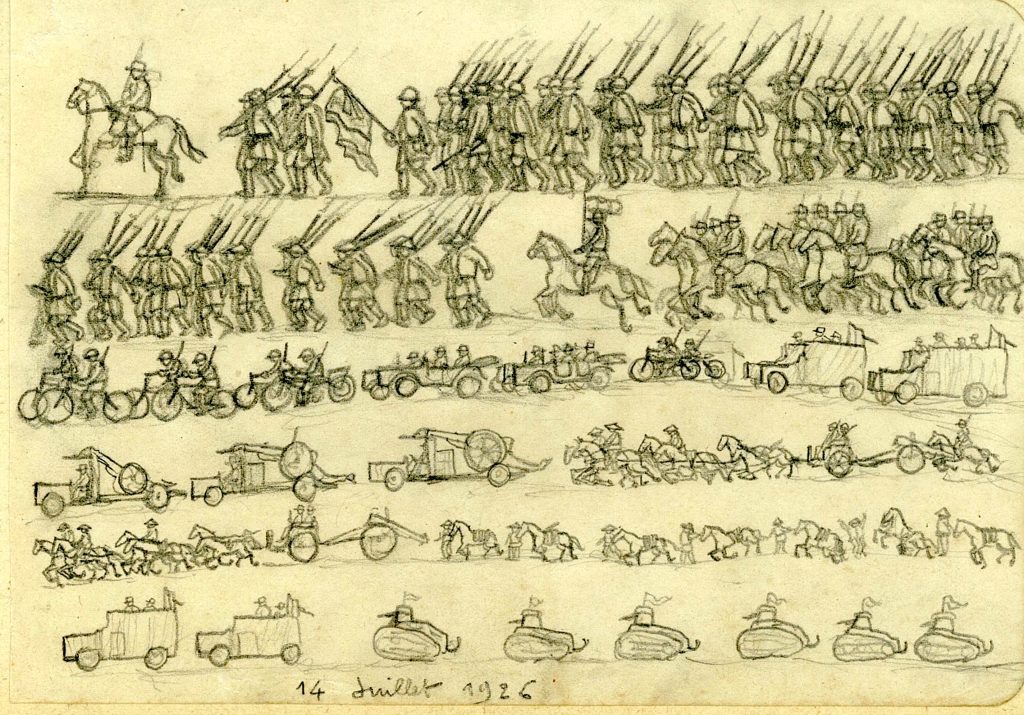 14 Juillet 1926